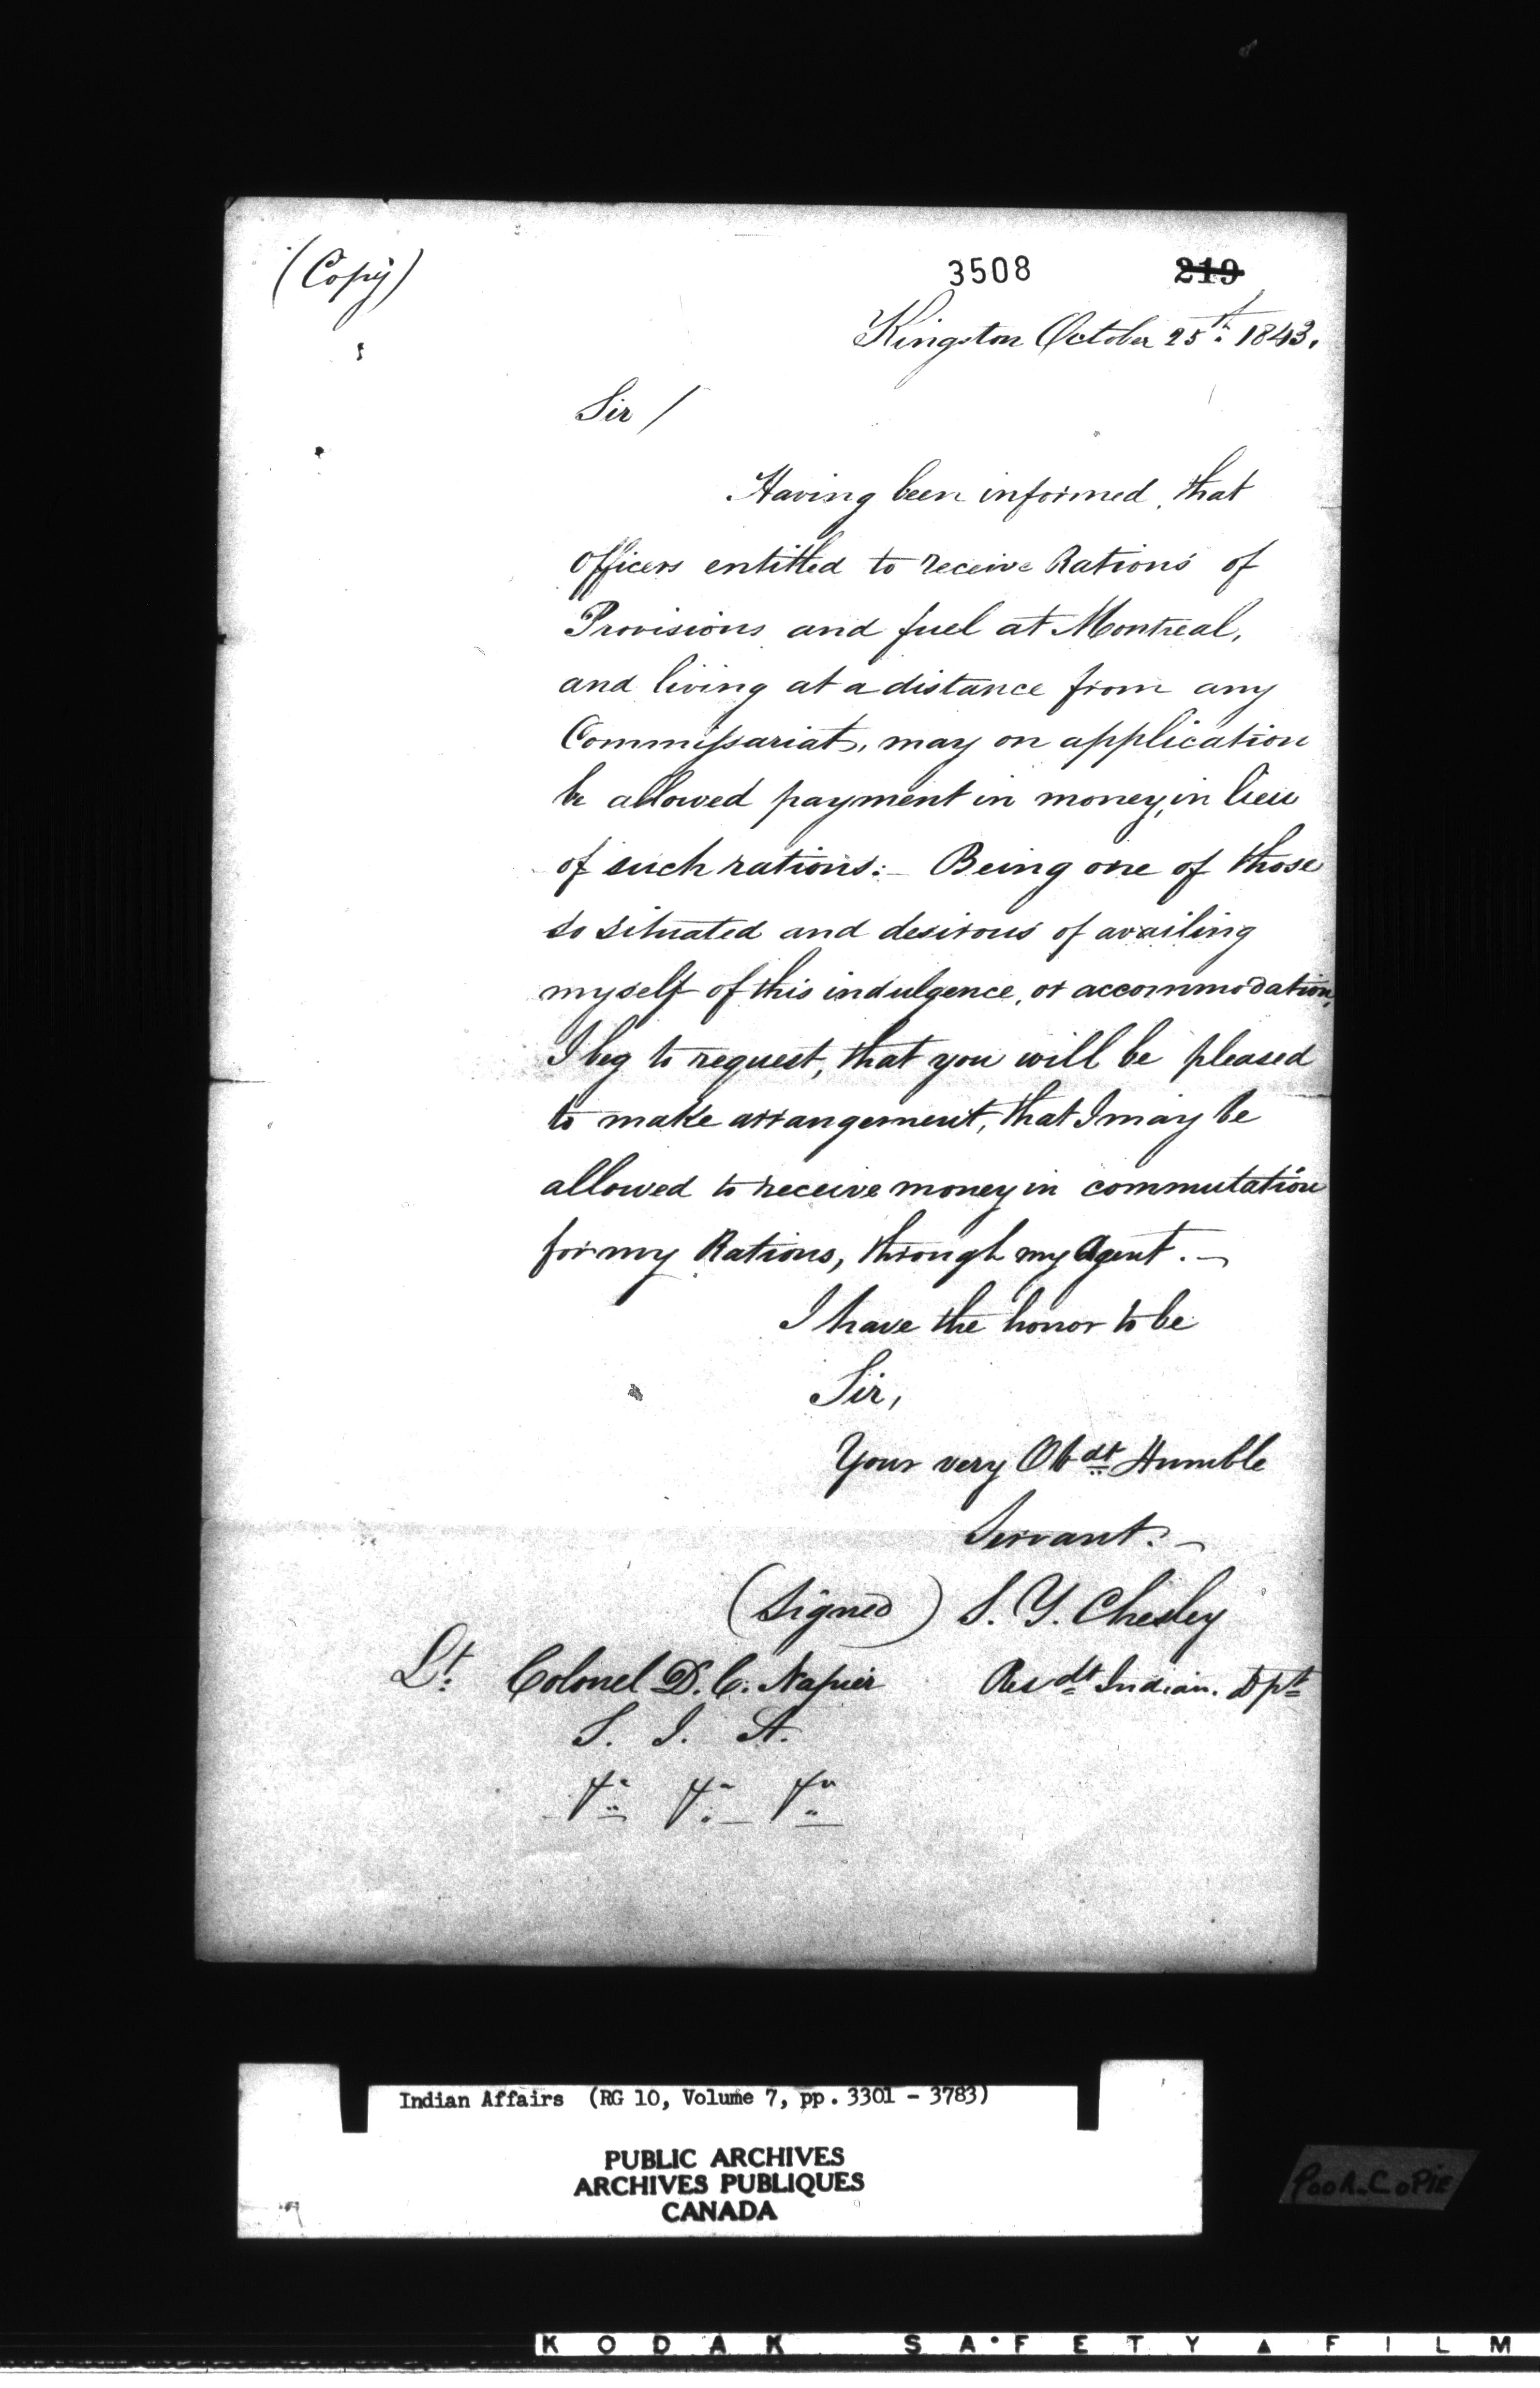 (Copy)
3508 219
Kingston October 25th. 1843.
Sir /
Having been informed, that
Officers entitled to receive Rations of
Provisions and fuel at Montreal,
and living at a distance from any
Commissariat, may on application
be allowed payment in money, in lieu
of such rations:- Being one of those
so situated and desirous of availing
myself of this indulgence, or accommodation,
I beg to request, that you will be pleased
to make arrangement, that I may be
allowed to receive money in commutation
for my Rations, through my Agent. -
I have the honor to be
Sir,
Your very Obdt Humble
Servant. -
(Signed) S. Y. Chesley
Lt. Colonel D. C. Napier Resdt Indian. Dpt
S. I. A.
Indian Affairs (RG 10, Volume 7, pp. 3301 - 3783)
PUBLIC ARCHIVES
ARCHIVES PUBLIQUES
CANADA
POOR COPIE
KODAK SAFETY ▲ FILM